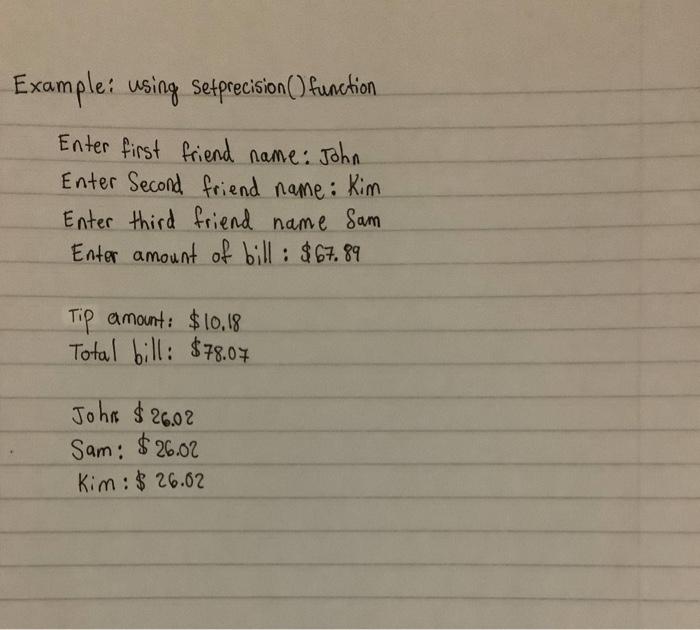 Example: using setprecision() function
Enter first friend name: John
Enter Second friend name: Kim
Enter third friend name Sam
Enter amount of bill: $67.89
Tip amount: $10.18
Total bill: $78.07
John $26.02
Sam: $26.02
Kim: $26.02